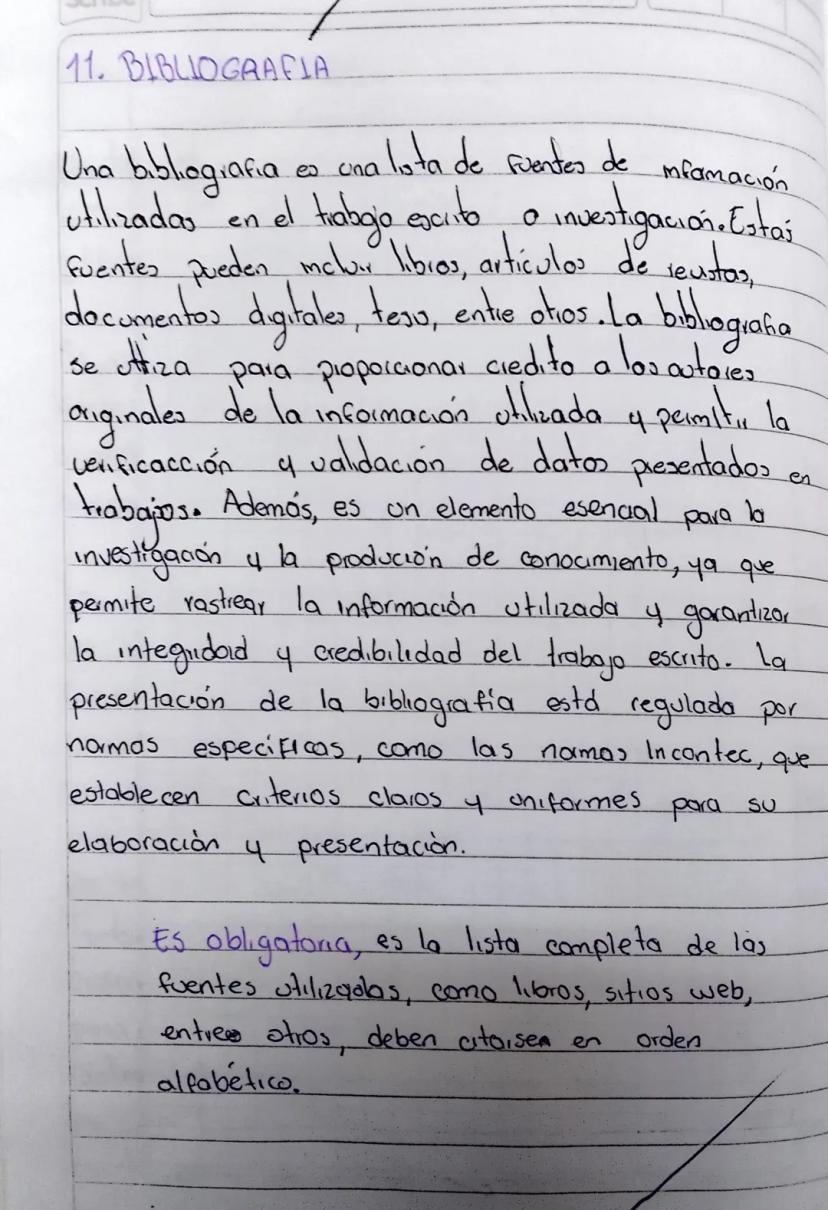 11. BIBLIOGRAFIA
Una bibliografia es una lista de fuentes de mfamación
utilizadas en el trabajo escrito o investigación. Estas
fuentes pueden incluir libros, artículos de revistas,
documentos digitales, tesis, entre otros. La bibliografia
se utiliza para proporcionar credito a los autores
originales de la información utilizada y permitir la
verificacción y validación de datos presentados en
trabajos. Además, es un elemento esencial para la
investigación y la produción de conocimiento, ya que
permite rastrear la información utilizada y garantizar
la integridad y credibilidad del trabajo escrito. La
presentación de la bibliografía está regulada por
normas especificas, como las normas Incontec, que
establecen criterios claros y uniformes para su
elaboración y presentación.
Es obligatoria, es la lista completa de las
fuentes utilizadas, como libros, sitios web,
entre otros, deben citarsen en orden
alfabético.